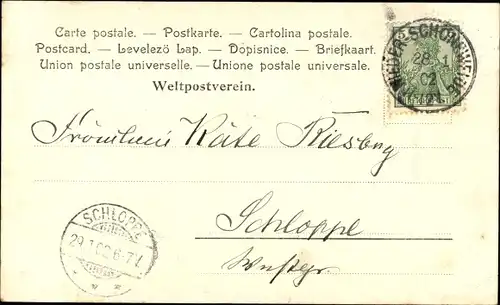 Carte postale. — Postkarte. — Cartolina postale.
Postcard. — Levelező Lap. — Dopisnice. — Briefkaart.
Union postale universelle. — Unione postale universale.
Weltpostverein.
28 1
02
Fräulein Käte Riesberg
SCHLOPPE
29.1.02.6-7V.
Schloppe
Westpr.